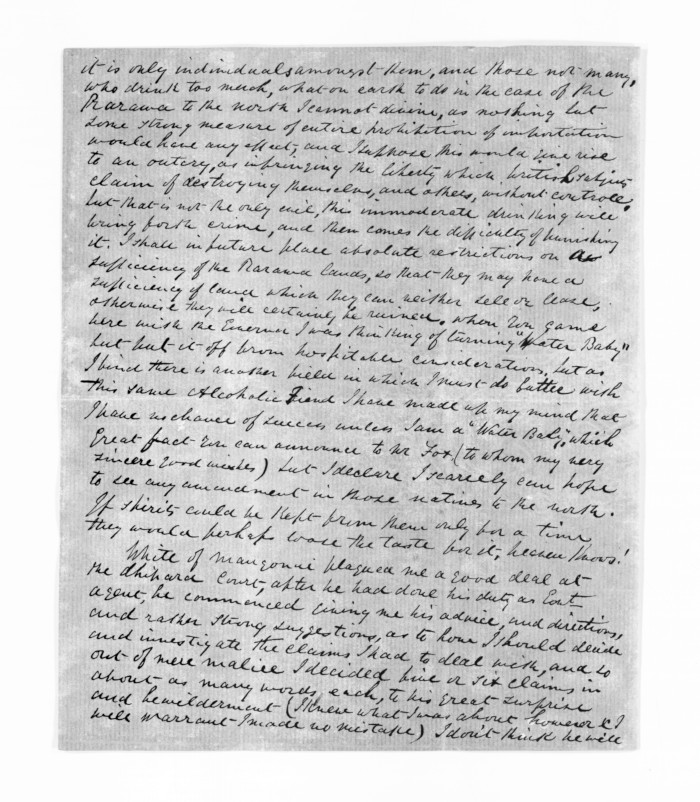 it is only individuals amongst them, and those not many,
who drink too much, what on earth to do in the case of the
Rarawa to the north I cannot divine, as nothing but
some strong measure of entire prohibition of importation
would have any effect, and I suppose this would give rise
to an outcry, as infringing the liberty which british subjects
claim of destroying themselves, and others, without controll,
but that is not the only evil, this immoderate drinking will
bring forth crime, and then comes the difficulty of punishing
it. I shall in future place absolute restrictions on a
sufficiency of the Rarawa lands, so that they may have a
sufficiency of land which they can neither sell or lease,
otherwise they will certainly be ruined. when you came
here with the Governor I was thinking of turning "Water Baby"
but put it off from hospitable considerations, but as
I find there is another field in which I must do battle with
this same Alcoholic Fiend I have made up my mind that
I have no chance of success unless I am a "Water Baby", which
Great fact you can announce to Mr Fox (to whom my very
sincere good wishes) but I declare I scarcely can hope
to see any amendment in those natives to the north.
If spirits could be kept from them only for a time
they would perhaps loose the taste for it, heaven knows!
White of mangonui plagued me a good deal at
the Ahipara Court, after he had done his duty as Govt
agent, he commenced giving me his advice, and directions,
and rather strong suggestions, as to how I should decide
and investigate the claims I had to deal with, and so
out of mere malice I decided five or six claims in
about as many words, each, to his great surprise
and bewilderment (I knew what I was about however & I
will warrant I made no mistake) I don't think he will